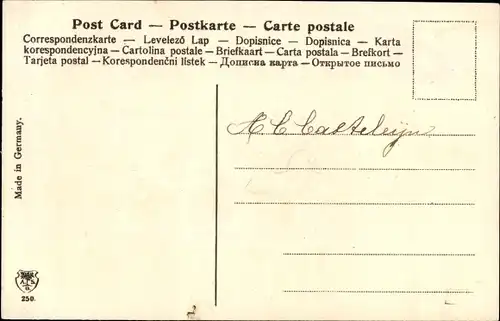 Post Card — Postkarte — Carte postale
Correspondenzkarte — Levelező Lap — Dopisnice — Dopisnica — Karta
korespondencyjna — Cartolina postale — Briefkaart — Carta postala — Brefkort —
Tarjeta postal — Korespondenční lístek — Дописна карта — Открытое письмо
Made in Germany.
A C Casteleijn
250.